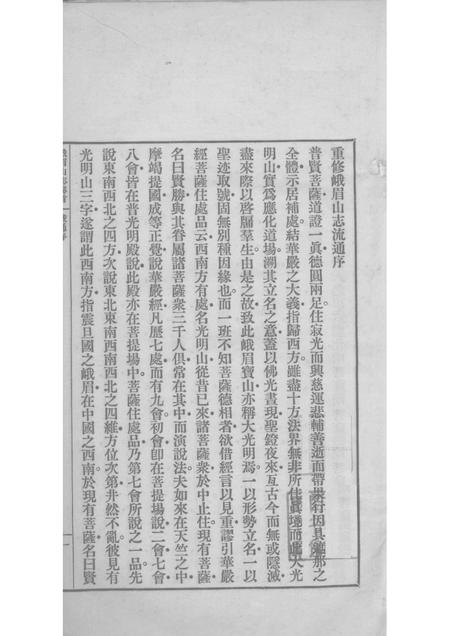 重修峨眉山志流通序
普賢菩薩道證一眞德圓兩足住寂光而興慈運悲輔善逝而帶果行因具那之
全體示居補處結華嚴之大義指歸西方雖盡十方法界無非所住眞境而大光
明山實爲應化道場溯其立名之意蓋以佛光晝現聖鐙夜來亙古今而無或隱滅
盡來際以啓牖羣生由是之故致此峨眉寶山亦稱大光明焉一以形勢立名一以
聖迹取號固無別種因緣也而一班不知菩薩德相者欲借經言以見重謬引華嚴
經菩薩住處品云西南方有處名光明山從昔已來諸菩薩衆於中止住現有菩薩
名曰賢勝與其眷屬諸菩薩衆三千人俱常在其中而演說法夫如來在天竺之中
摩竭提國成等正覺說華嚴經凡歷七處而有九會初會卽在菩提場說二會七會
八會皆在普光明殿說此殿亦在菩提場中菩薩住處品乃第七會所說之一品先
說東南西北之四方次說東北東南西南西北之四維方位次第井然不亂彼見有
光明山三字遂謂此西南方指震旦國之峨眉在中國之西南於現有菩薩名曰賢